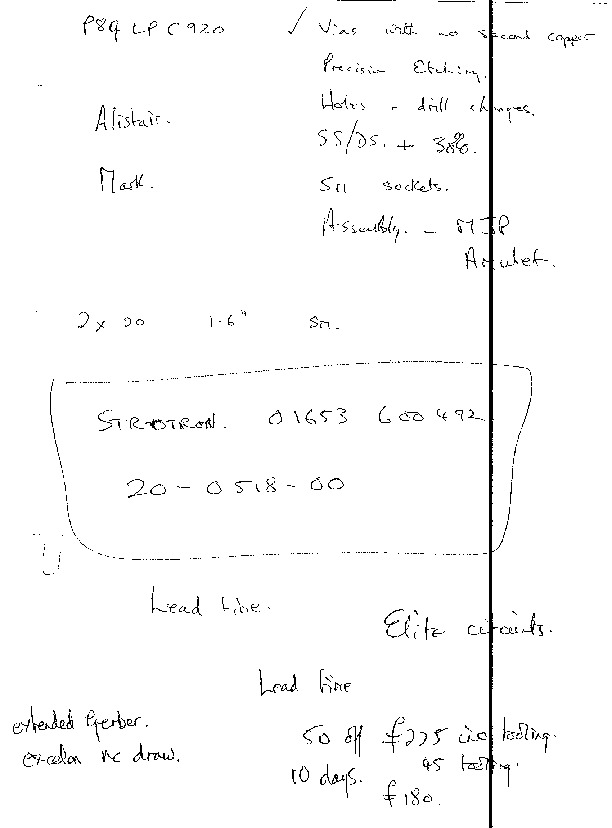 P89 LPC920
✓ Vias with no second copper
Precision Etching.
Holes - drill changes.
Alistair.
SS/DS. + 30%.
Mark.
SM sockets.
Assembly. -
Amulet.
2 x 20 1.6" SM.
STRATRON. 01653 600492
20-0518-00
Lead time.
Elite circuits.
Lead time
extended Gerber.
excelon nc draw.
50 off £225 inc tooling.
10 days. 45 tooling.
£180.